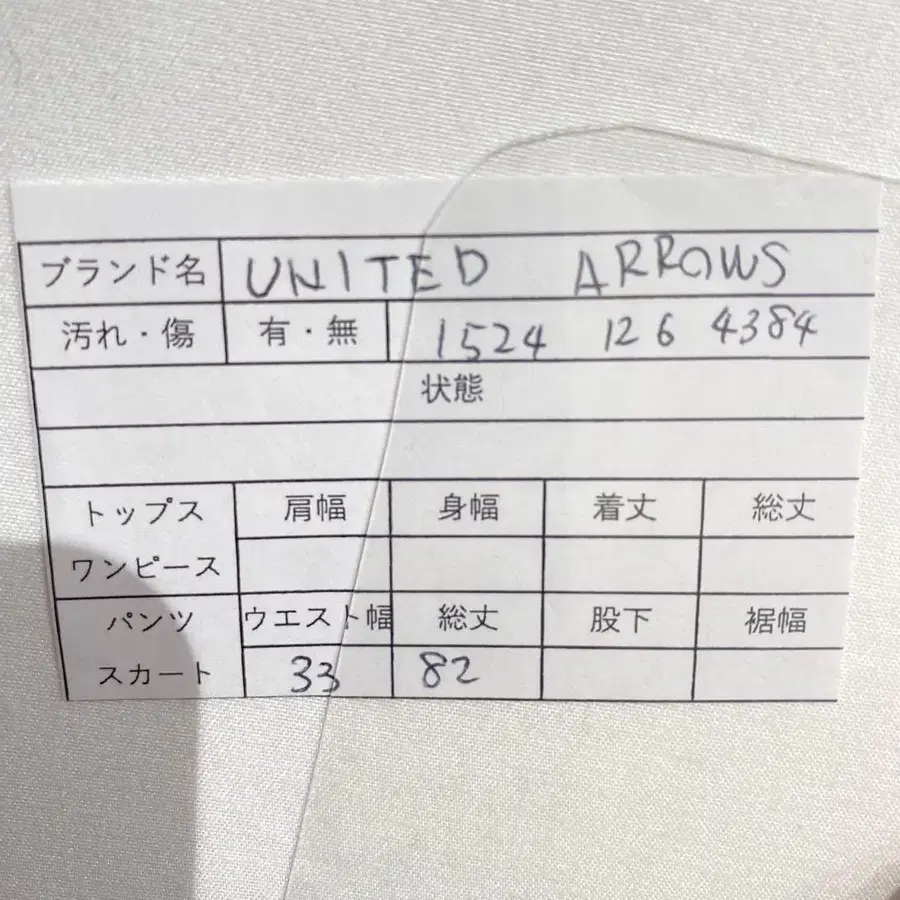 ブランド名 UNITED ARROWS
汚れ・傷 有・無 1524 126 4384
状態
トップス 肩幅 身幅 着丈 総丈
ワンピース
パンツ ウエスト幅 総丈 股下 裾幅
スカート 33 82